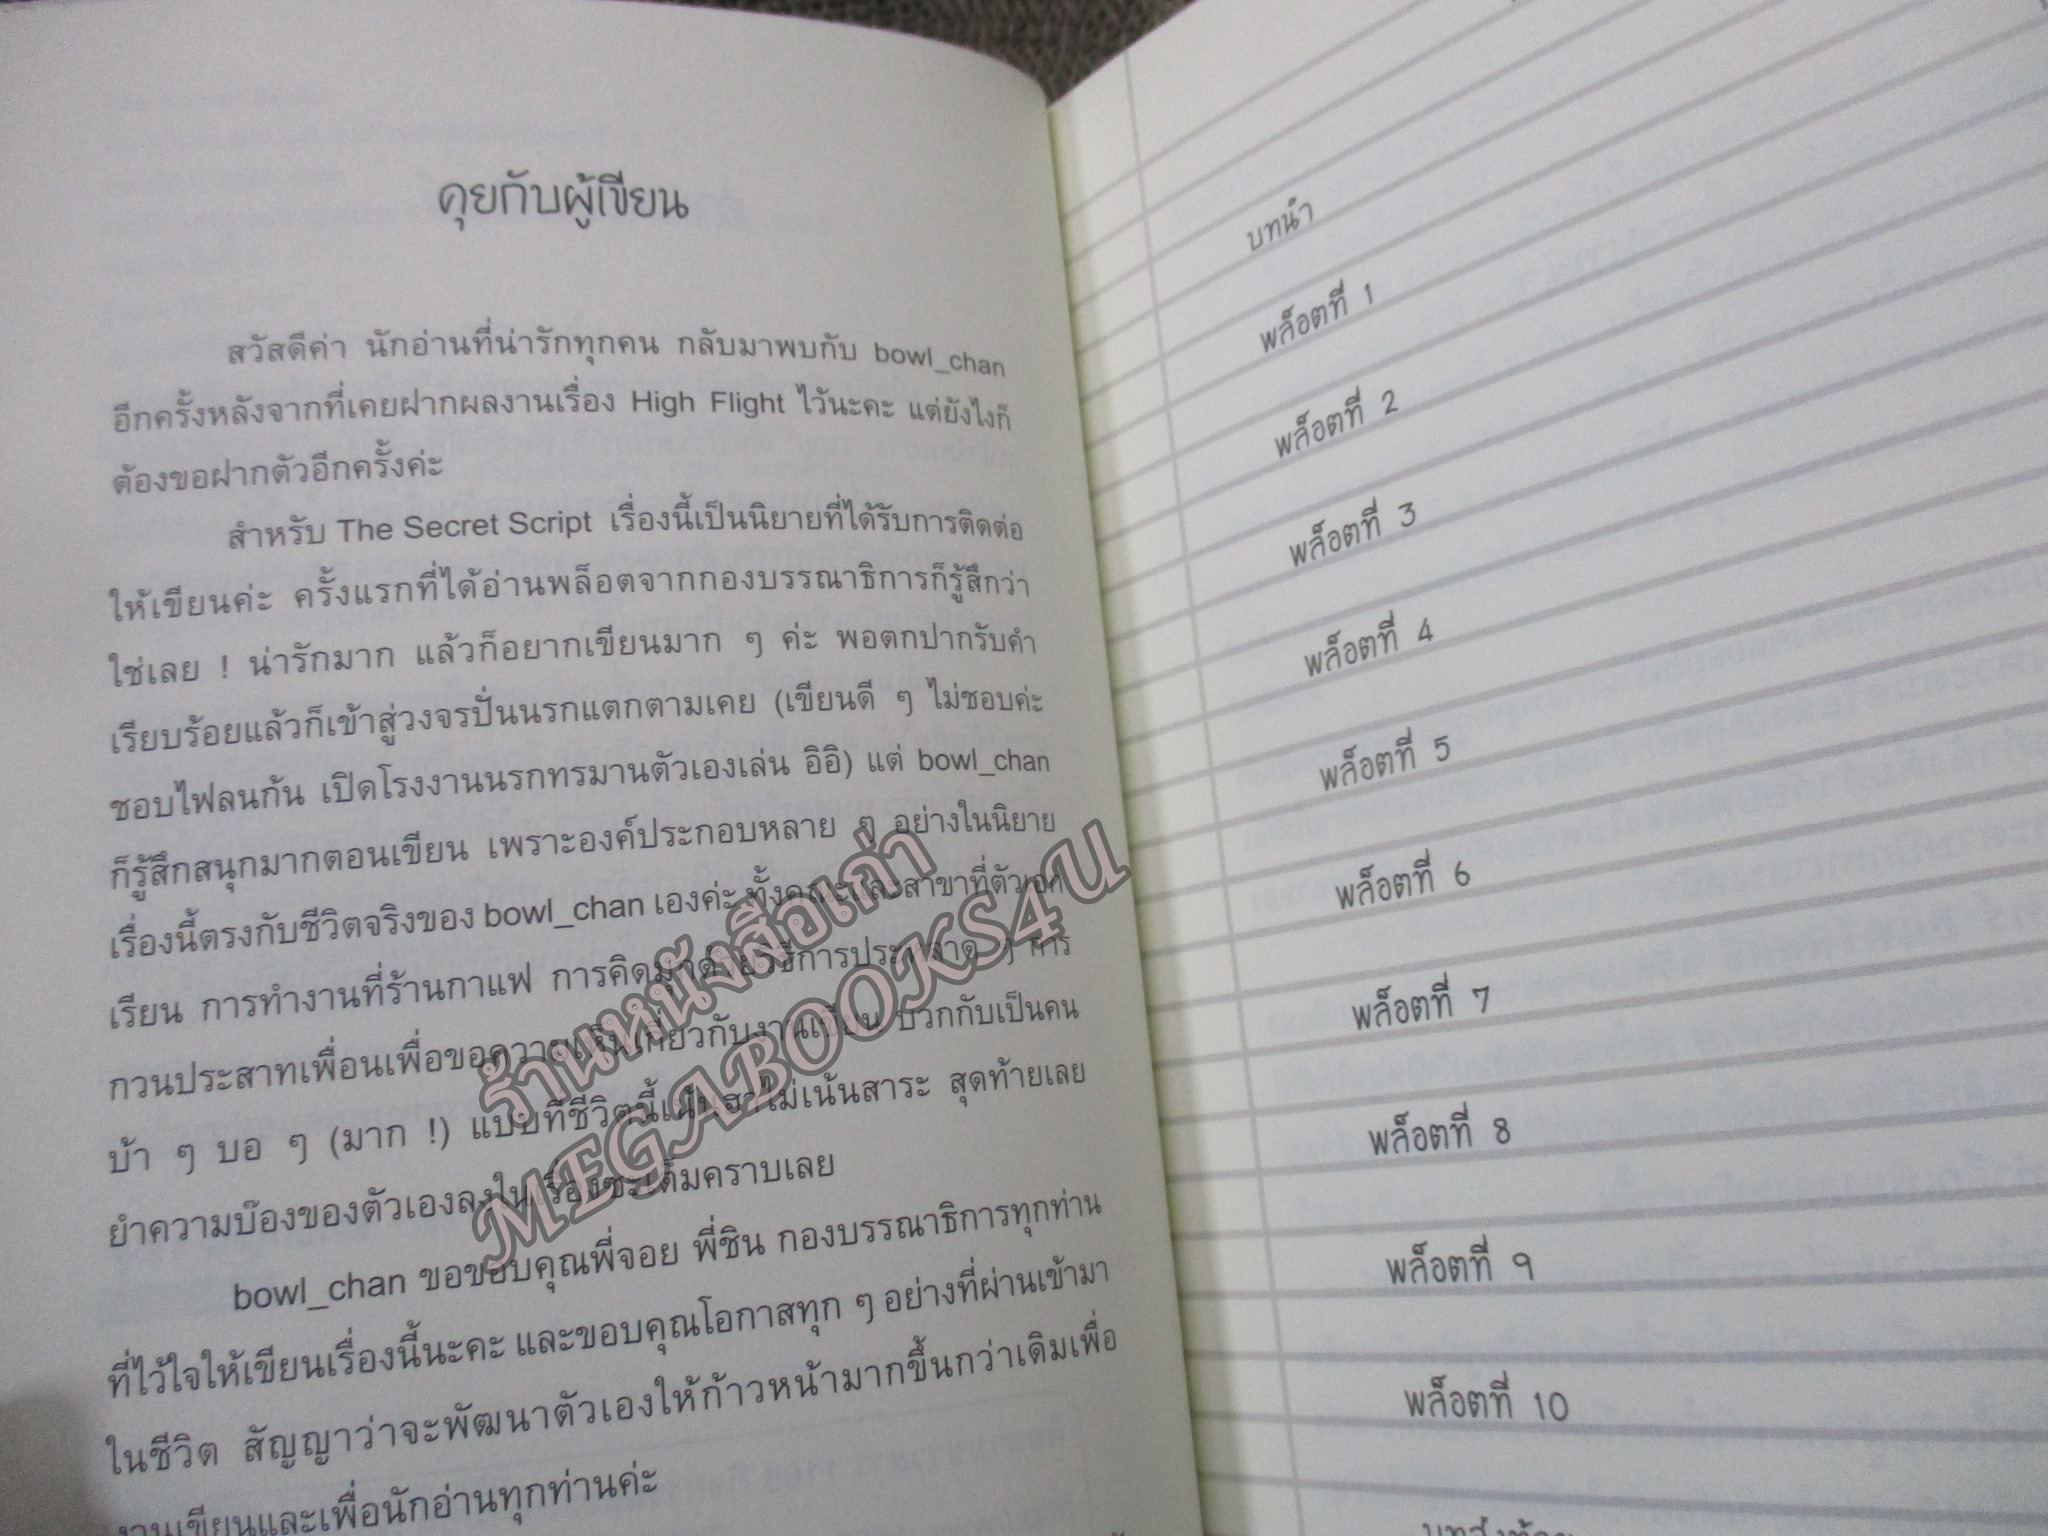 คุยกับผู้เขียน
สวัสดีค่า นักอ่านที่น่ารักทุกคน กลับมาพบกับ bowl_chan
อีกครั้งหลังจากที่เคยฝากผลงานเรื่อง High Flight ไว้นะคะ แต่ยังไงก็
ต้องขอฝากตัวอีกครั้งค่ะ
สำหรับ The Secret Script เรื่องนี้เป็นนิยายที่ได้รับการติดต่อ
ให้เขียนค่ะ ครั้งแรกที่ได้อ่านพล็อตจากกองบรรณาธิการก็รู้สึกว่า
ใช่เลย ! น่ารักมาก แล้วก็อยากเขียนมาก ๆ ค่ะ พอตกปากรับคำ
เรียบร้อยแล้วก็เข้าสู่วงจรปั่นนรกแตกตามเคย (เขียนดี ๆ ไม่ชอบค่ะ
ชอบไฟลนก้น เปิดโรงงานนรกทรมานตัวเองเล่น อิอิ) แต่ bowl_chan
ก็รู้สึกสนุกมากตอนเขียน เพราะองค์ประกอบหลาย ๆ อย่างในนิยาย
เรื่องนี้ตรงกับชีวิตจริงของ bowl_chan เองค่ะ ทั้งคณะและสาขาที่ตัวเอก
เรียน การทำงานที่ร้านกาแฟ การคิดมุกด้วยวิธีการประหลาด ๆ การ
กวนประสาทเพื่อนเพื่อขอความเห็นเกี่ยวกับงานเขียน บวกกับเป็นคน
บ้า ๆ บอ ๆ (มาก !) แบบที่ชีวิตนี้เน้นฮาไม่เน้นสาระ สุดท้ายเลย
ยำความบ๊องของตัวเองลงในเรื่องซะเต็มคราบเลย
bowl_chan ขอขอบคุณพี่จอย พี่ชิน กองบรรณาธิการทุกท่าน
ที่ไว้ใจให้เขียนเรื่องนี้นะคะ และขอบคุณโอกาสทุก ๆ อย่างที่ผ่านเข้ามา
ในชีวิต สัญญาว่าจะพัฒนาตัวเองให้ก้าวหน้ามากขึ้นกว่าเดิมเพื่อ
งานเขียนและเพื่อนักอ่านทุกท่านค่ะ
ร้านหนังสือเก่า
MEGABOOKS4U
บทนำ
พล็อตที่ 1
พล็อตที่ 2
พล็อตที่ 3
พล็อตที่ 4
พล็อตที่ 5
พล็อตที่ 6
พล็อตที่ 7
พล็อตที่ 8
พล็อตที่ 9
พล็อตที่ 10